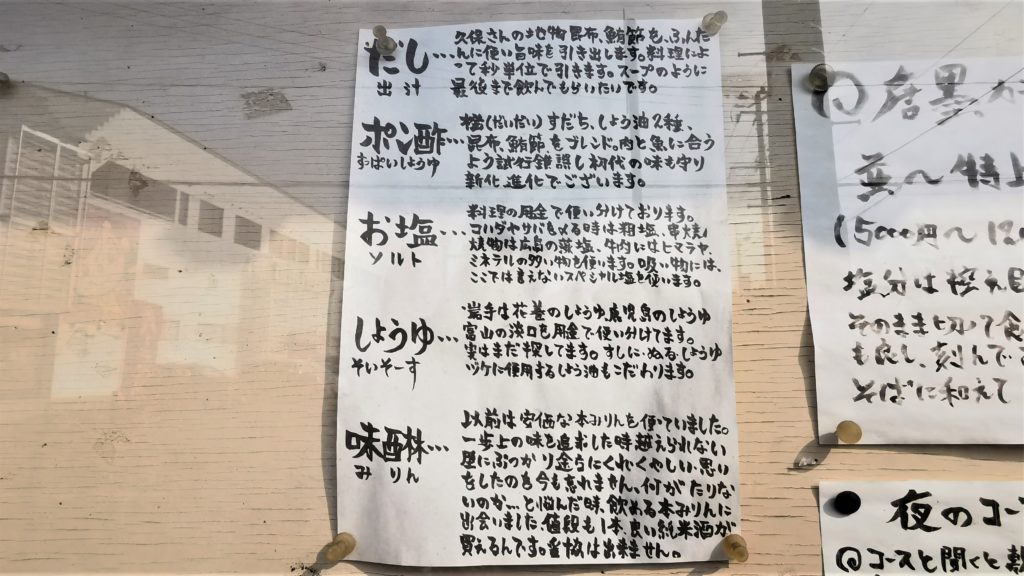 だし…
出汁
久保さんの地物昆布、鮪節を、ふんだ
んに使い旨味を引き出します。料理によ
って秒単位で引きます。スープのように
最後まで飲んでもらいたいです。
ポン酢…
すっぱいしょうゆ
橙(だいだい)すだち、しょう油2種、
昆布、鮪節をブレンド。肉と魚に合う
よう試行錯誤し初代の味も守り
新化進化でございます。
お塩…
ソルト
料理の用途で使い分けております。
コハダやサバを〆る時は粗塩、串焼、
焼物は広島の藻塩、牛肉にはヒマラヤ、
ミネラルの多い物を使います。吸い物には、
ここでは言えないスペシャル塩を使います。
しょうゆ…
そいそーす
岩手は花巻のしょうゆ、鹿児島のしょうゆ
富山の淡口を用途で使い分けてます。
実はまだ探してます。すしに、ぬるしょうゆ
ヅケに使用するしょう油もこだわります。
味醂…
みりん
以前は安価な本みりんを使っていました。
一歩上の味を追求した時越えられない
壁にぶつかり途方にくれくやしい思い
をしたのを今も忘れません。何がたりな
いのか…と悩んだ時、飲める本みりんに
出会いました。値段も1本、良い純米酒が
買えるんです。妥協は出来ません。
@唐墨
特上
15000円〜
塩分は控え目
そのまま切って食
も良し、刻んで
そばに和えて
夜のコー
@コースと聞くと